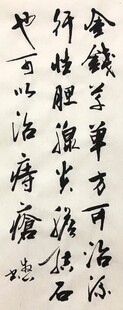 金錢草單方可治流
行性腮腺炎膽結石
也可以治痔瘡